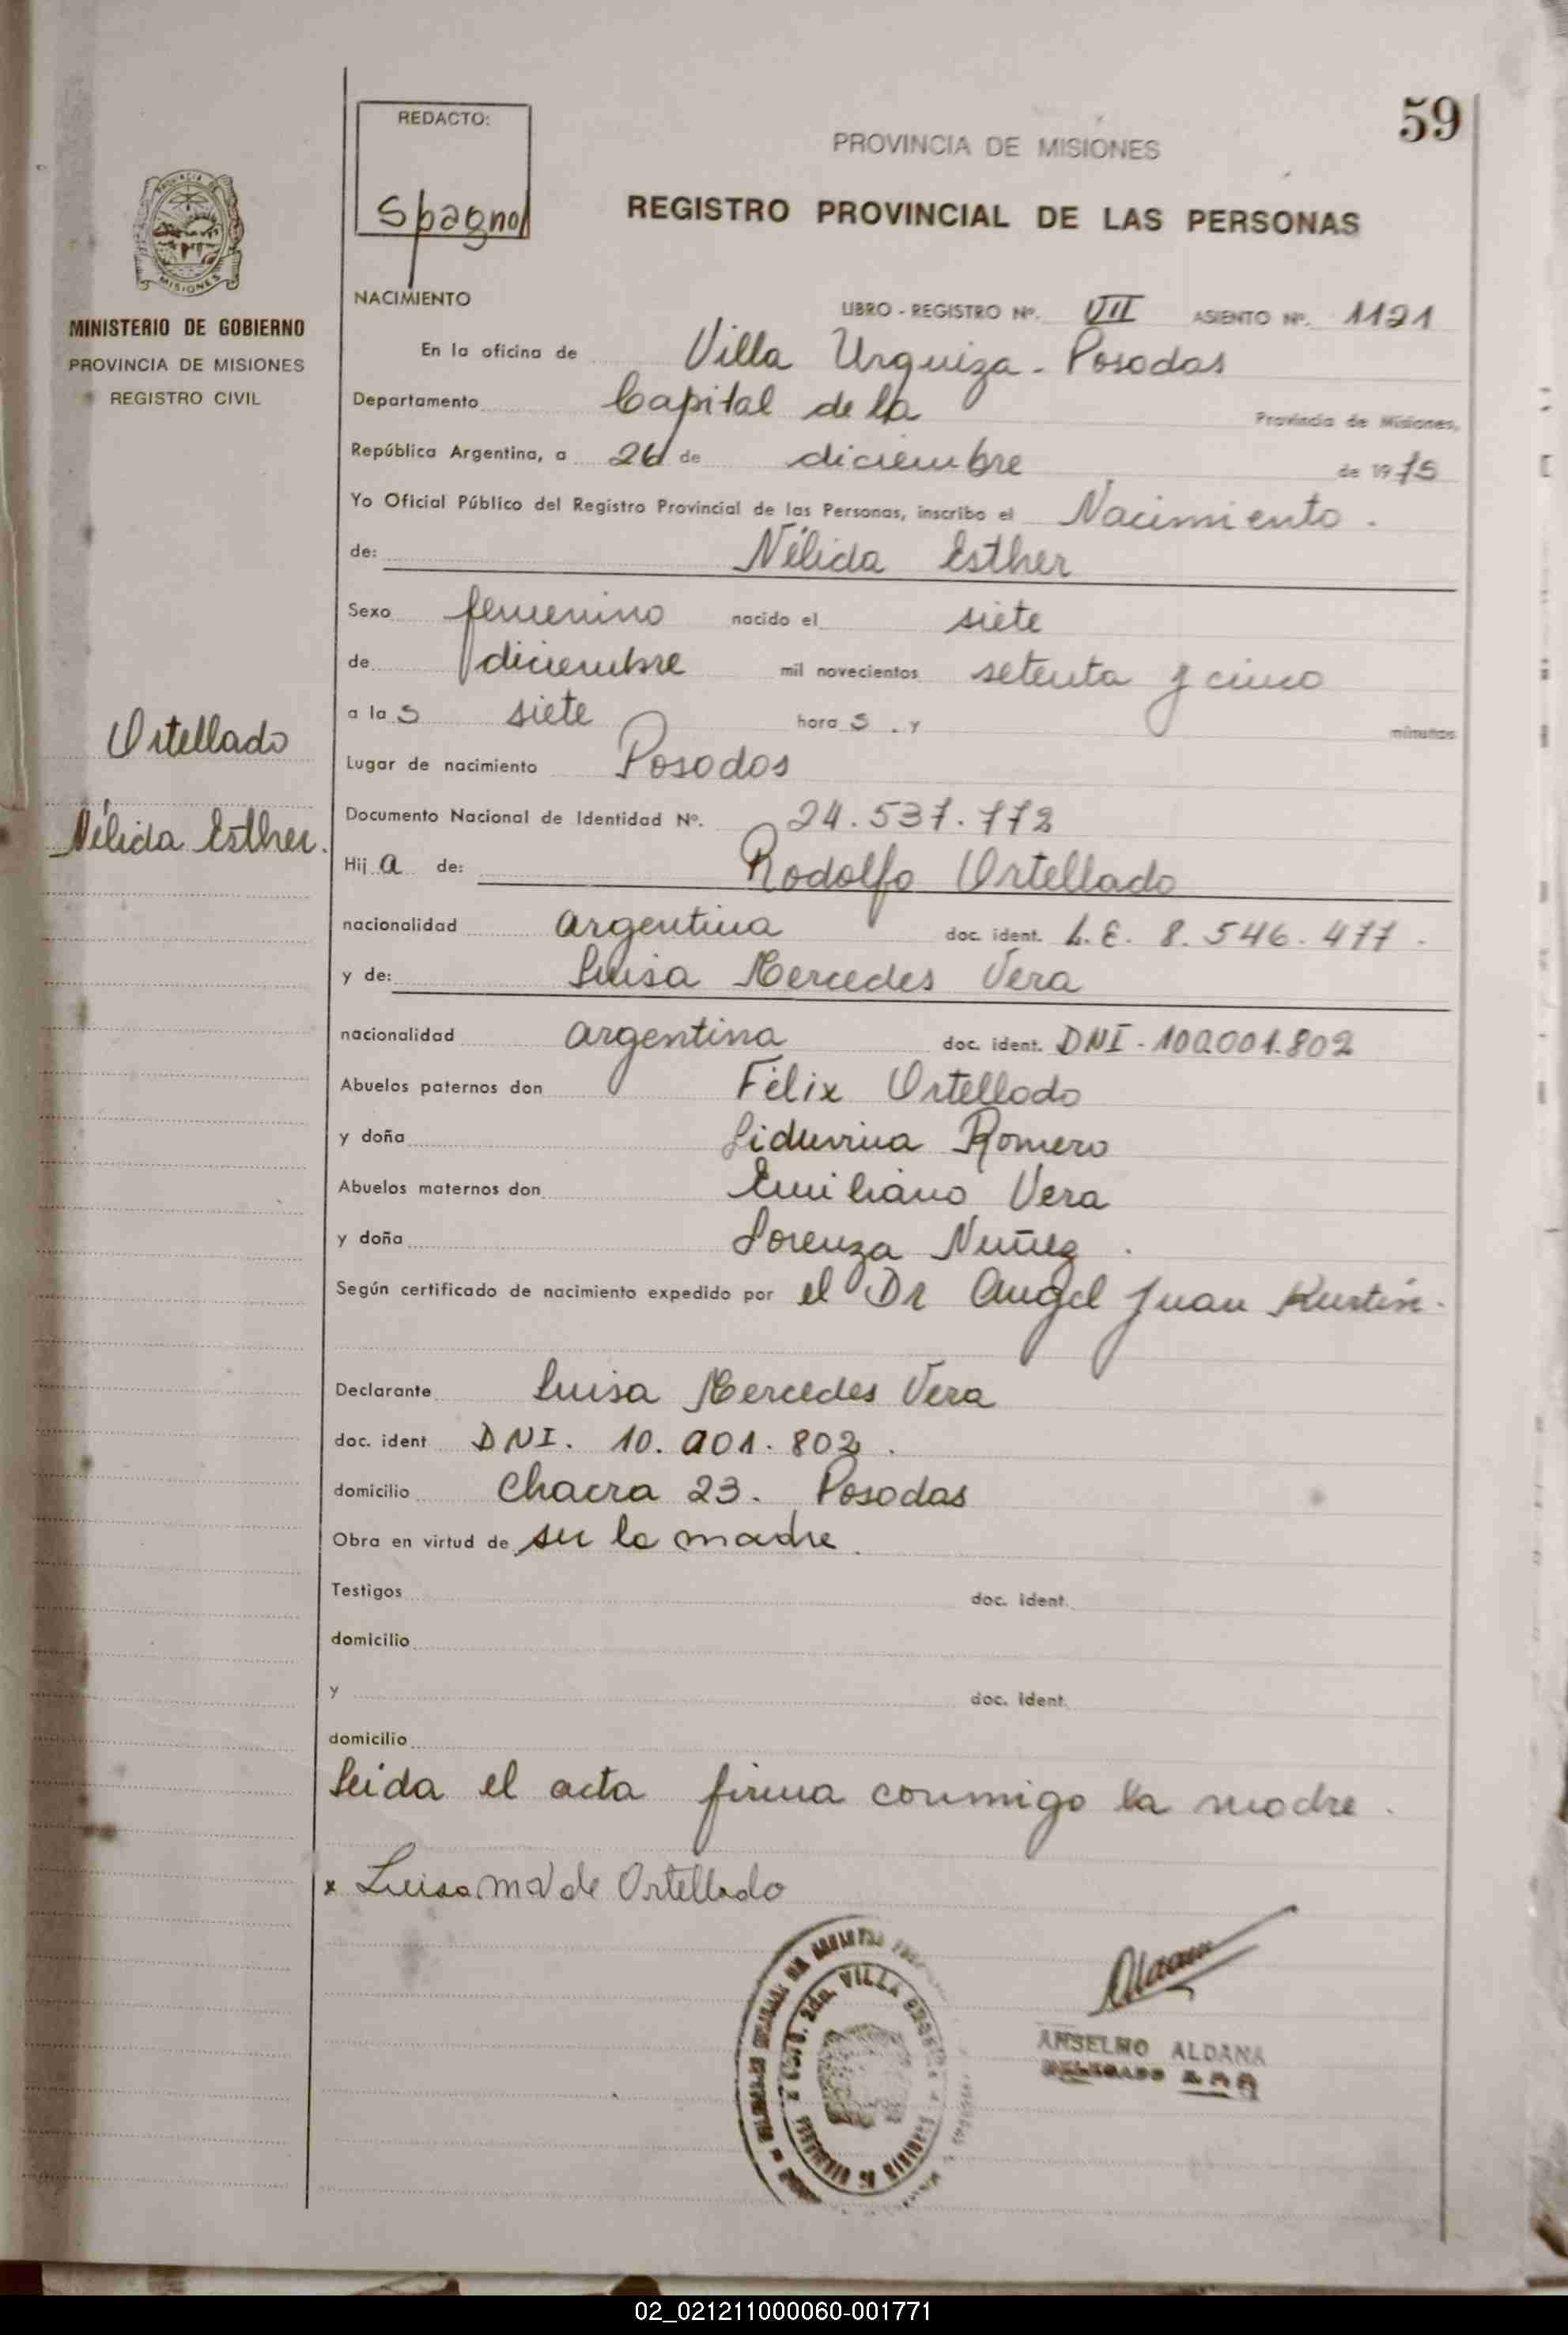 59
REDACTO:
Spagnol
PROVINCIA DE MISIONES
REGISTRO PROVINCIAL DE LAS PERSONAS
MISIONES
MINISTERIO DE GOBIERNO
PROVINCIA DE MISIONES
REGISTRO CIVIL
NACIMIENTO LIBRO - REGISTRO Nº. VII ASIENTO Nº. 1121
En la oficina de Villa Urquiza - Posadas
Departamento Capital de la Provincia de Misiones,
República Argentina, a 26 de diciembre de 1975
Yo Oficial Público del Registro Provincial de las Personas, inscribo el Nacimiento.
de: Nélida Esther
Sexo femenino nacido el siete
de diciembre mil novecientos setenta y cinco
a las siete horas. y minutos
Ortellado
Nélida Esther.
Lugar de nacimiento Posadas
Documento Nacional de Identidad Nº. 24.537.772
Hija de: Rodolfo Ortellado
nacionalidad argentina doc. ident. L.E. 8.546.477.
y de: Luisa Mercedes Vera
nacionalidad argentina doc. ident. DNI - 10.001.802
Abuelos paternos don Félix Ortellado
y doña Liduvina Romero
Abuelos maternos don Emiliano Vera
y doña Lorenza Nuñez.
Según certificado de nacimiento expedido por el Dr Angel Juan
Declarante Luisa Mercedes Vera
doc. ident DNI. 10.001.802.
domicilio Chacra 23. Posadas
Obra en virtud de ser la madre.
Testigos doc. ident.
domicilio
y doc. ident.
domicilio
Leida el acta firma conmigo la madre.
x Luisa M V de Ortellado
VILLA
ANSELMO ALDANA
DELEGADO
02_021211000060-001771